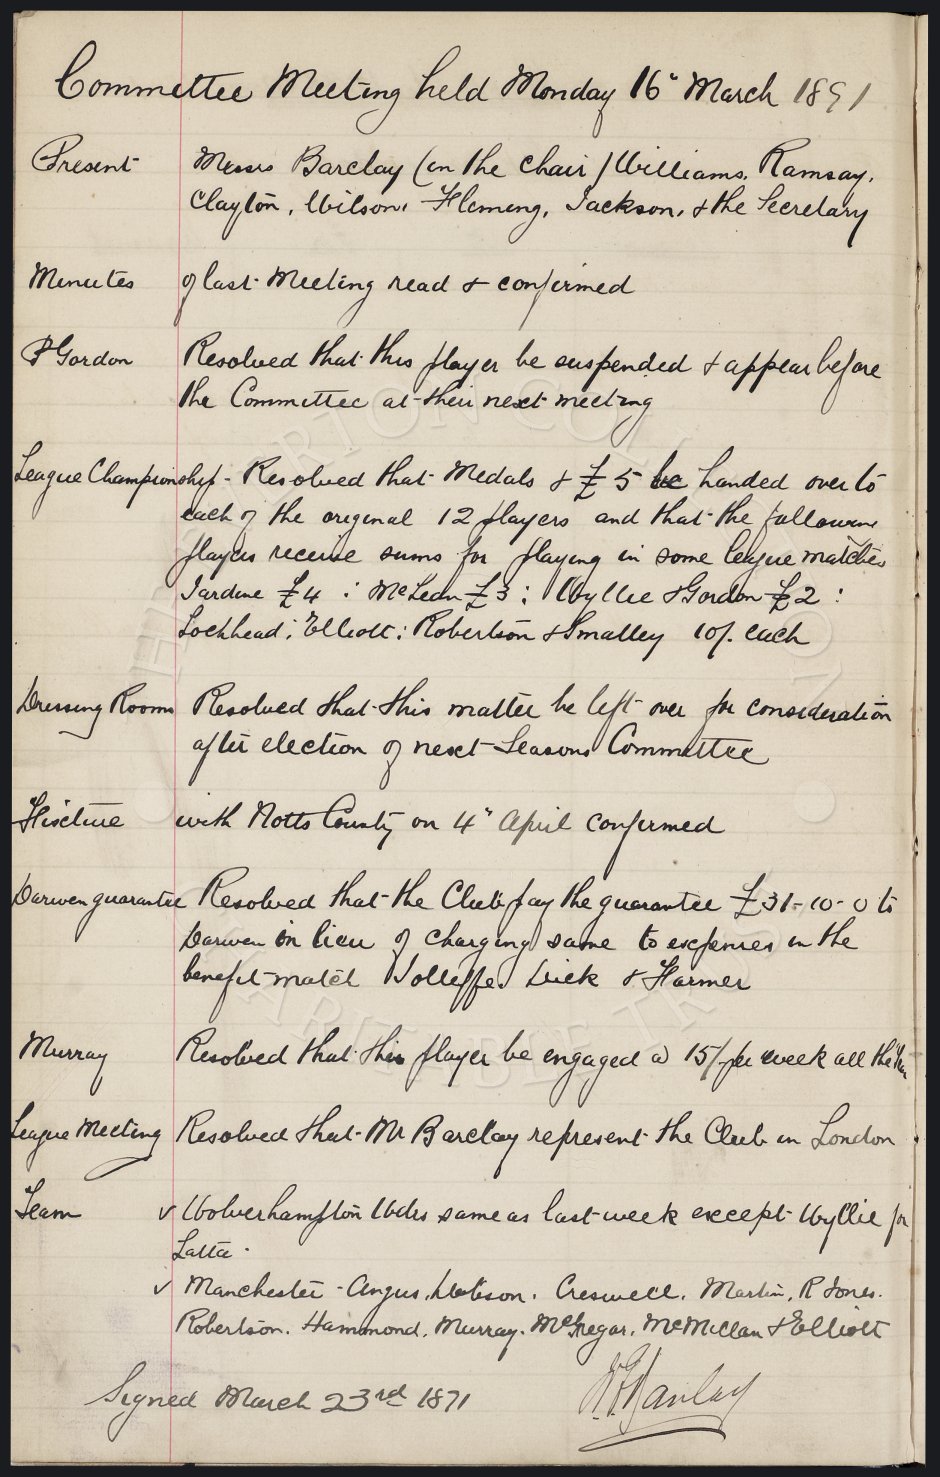 Committee Meeting held Monday 16" March 1891
Present Messrs Barclay (in the chair) Williams, Ramsay,
Clayton, Wilson, Fleming, Jackson, & the Secretary
Minutes of last Meeting read & confirmed
P Gordon Resolved that this player be suspended & appear before
the Committee at their next meeting
League Championship - Resolved that Medals & £5 be handed over to
each of the original 12 players and that the following
players receive sums for playing in some league matches
Jardine £4 : McLean £3 : Wyllie & Gordon £2 :
Lochhead : Elliott : Robertson & Smalley 10/. each
Dressing Rooms Resolved that this matter be left over for consideration
after election of next Seasons Committee
Fixture with Notts County on 4" April confirmed
Darwen guarantee Resolved that the Club pay the guarantee £31-10-0 to
Darwen in lieu of charging same to expenses in the
benefit match Jolliffe Dick & Harmer
Murray Resolved that this player be engaged @ 15/- per week all the
League Meeting Resolved that Mr Barclay represent the Club in London
Team √ Wolverhampton Wdrs same as last week except Wyllie for
Latta.
√ Manchester - Angus, Dobson, Creswell, Martin, R Jones.
Robertson. Hammond. Murray. McGregor, McMillan & Elliott
Signed March 23rd 1891